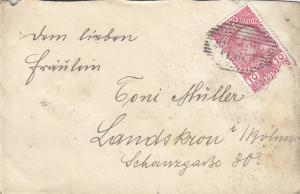 Dem lieben
Fräulein
Toni Müller
Landskron i/Böhmen
Schanzgaße 30.
10
10